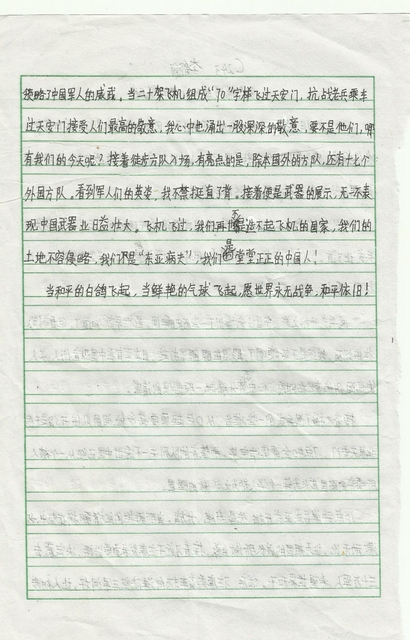 领略了中国军人的威武。当二十架飞机组成“70”字样飞过天安门，抗战老兵乘车
过天安门接受人们最高的敬意，我心中也涌出一股深深的敬意，要不是他们，哪
有我们的今天呢？接着徒步方队入场，有亮点的是，除本国外的方队，还有十七个
外国方队。看到军人们的英姿，我不禁挺直了背。接着便是武器的展示，无一不表
现中国武器业日益壮大。飞机飞过，我们再也不是造不起飞机的国家，我们的
土地不容侵略，我们不是“东亚病夫”，我们是堂堂正正的中国人！
当和平的白鸽飞起，当鲜艳的气球飞起，愿世界永无战争，和平依旧！